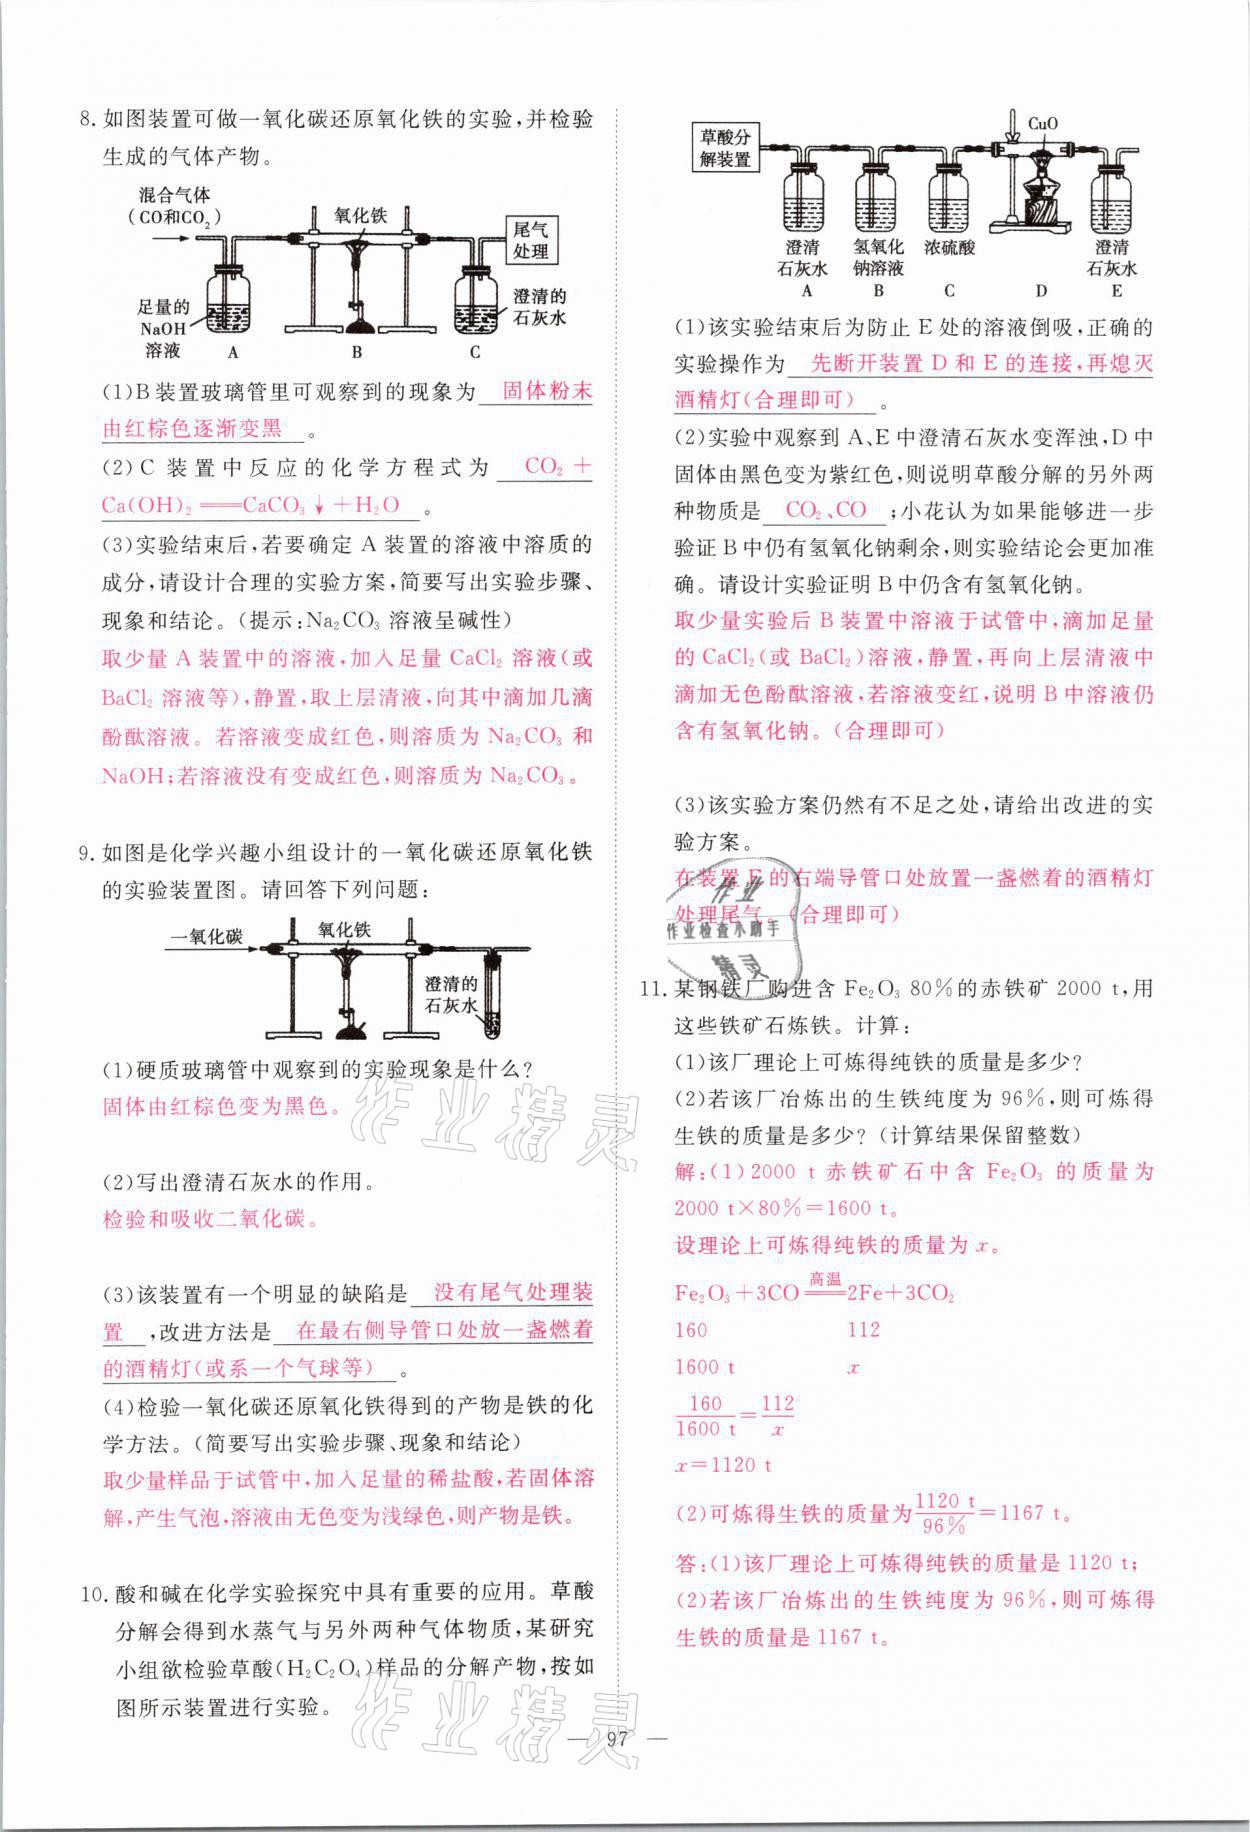 8. 如图装置可做一氧化碳还原氧化铁的实验,并检验
生成的气体产物。
混合气体
(CO和CO₂)
氧化铁
尾气
处理
足量的
NaOH
溶液
澄清的
石灰水
A
B
C
(1)B装置玻璃管里可观察到的现象为 固体粉末
由红棕色逐渐变黑 。
(2)C 装置中反应的化学方程式为 CO₂+
Ca(OH)₂══CaCO₃↓+H₂O 。
(3)实验结束后,若要确定 A 装置的溶液中溶质的
成分,请设计合理的实验方案,简要写出实验步骤、
现象和结论。(提示:Na₂CO₃ 溶液呈碱性)
取少量 A 装置中的溶液,加入足量 CaCl₂ 溶液(或
BaCl₂ 溶液等),静置,取上层清液,向其中滴加几滴
酚酞溶液。若溶液变成红色,则溶质为 Na₂CO₃ 和
NaOH;若溶液没有变成红色,则溶质为 Na₂CO₃。
9. 如图是化学兴趣小组设计的一氧化碳还原氧化铁
的实验装置图。请回答下列问题:
一氧化碳
氧化铁
澄清的
石灰水
(1)硬质玻璃管中观察到的实验现象是什么?
固体由红棕色变为黑色。
(2)写出澄清石灰水的作用。
检验和吸收二氧化碳。
(3)该装置有一个明显的缺陷是 没有尾气处理装
置 ,改进方法是 在最右侧导管口处放一盏燃着
的酒精灯(或系一个气球等) 。
(4)检验一氧化碳还原氧化铁得到的产物是铁的化
学方法。(简要写出实验步骤、现象和结论)
取少量样品于试管中,加入足量的稀盐酸,若固体溶
解,产生气泡,溶液由无色变为浅绿色,则产物是铁。
10. 酸和碱在化学实验探究中具有重要的应用。草酸
分解会得到水蒸气与另外两种气体物质,某研究
小组欲检验草酸(H₂C₂O₄)样品的分解产物,按如
图所示装置进行实验。
草酸分
解装置
CuO
澄清
石灰水
氢氧化
钠溶液
浓硫酸
澄清
石灰水
A
B
C
D
E
(1)该实验结束后为防止 E 处的溶液倒吸,正确的
实验操作为 先断开装置 D 和 E 的连接,再熄灭
酒精灯(合理即可) 。
(2)实验中观察到 A、E 中澄清石灰水变浑浊,D 中
固体由黑色变为紫红色,则说明草酸分解的另外两
种物质是 CO₂、CO ;小花认为如果能够进一步
验证 B 中仍有氢氧化钠剩余,则实验结论会更加准
确。请设计实验证明 B 中仍含有氢氧化钠。
取少量实验后 B 装置中溶液于试管中,滴加足量
的 CaCl₂(或 BaCl₂)溶液,静置,再向上层清液中
滴加无色酚酞溶液,若溶液变红,说明 B 中溶液仍
含有氢氧化钠。(合理即可)
(3)该实验方案仍然有不足之处,请给出改进的实
验方案。
在装置 E 的右端导管口处放置一盏燃着的酒精灯
处理尾气。(合理即可)
作业
作业检查小助手
精灵
11. 某钢铁厂购进含 Fe₂O₃ 80%的赤铁矿 2000 t,用
这些铁矿石炼铁。计算:
(1)该厂理论上可炼得纯铁的质量是多少?
(2)若该厂冶炼出的生铁纯度为 96%,则可炼得
生铁的质量是多少?(计算结果保留整数)
解:(1)2000 t 赤铁矿石中含 Fe₂O₃ 的质量为
2000 t×80%=1600 t。
设理论上可炼得纯铁的质量为 x。
Fe₂O₃+3CO═高温═2Fe+3CO₂
160 112
1600 t x
160/1600 t=112/x
x=1120 t
(2)可炼得生铁的质量为1120 t/96%=1167 t。
答:(1)该厂理论上可炼得纯铁的质量是 1120 t;
(2)若该厂冶炼出的生铁纯度为 96%,则可炼得
生铁的质量是 1167 t。
作业精灵
作业精灵
— 97 —